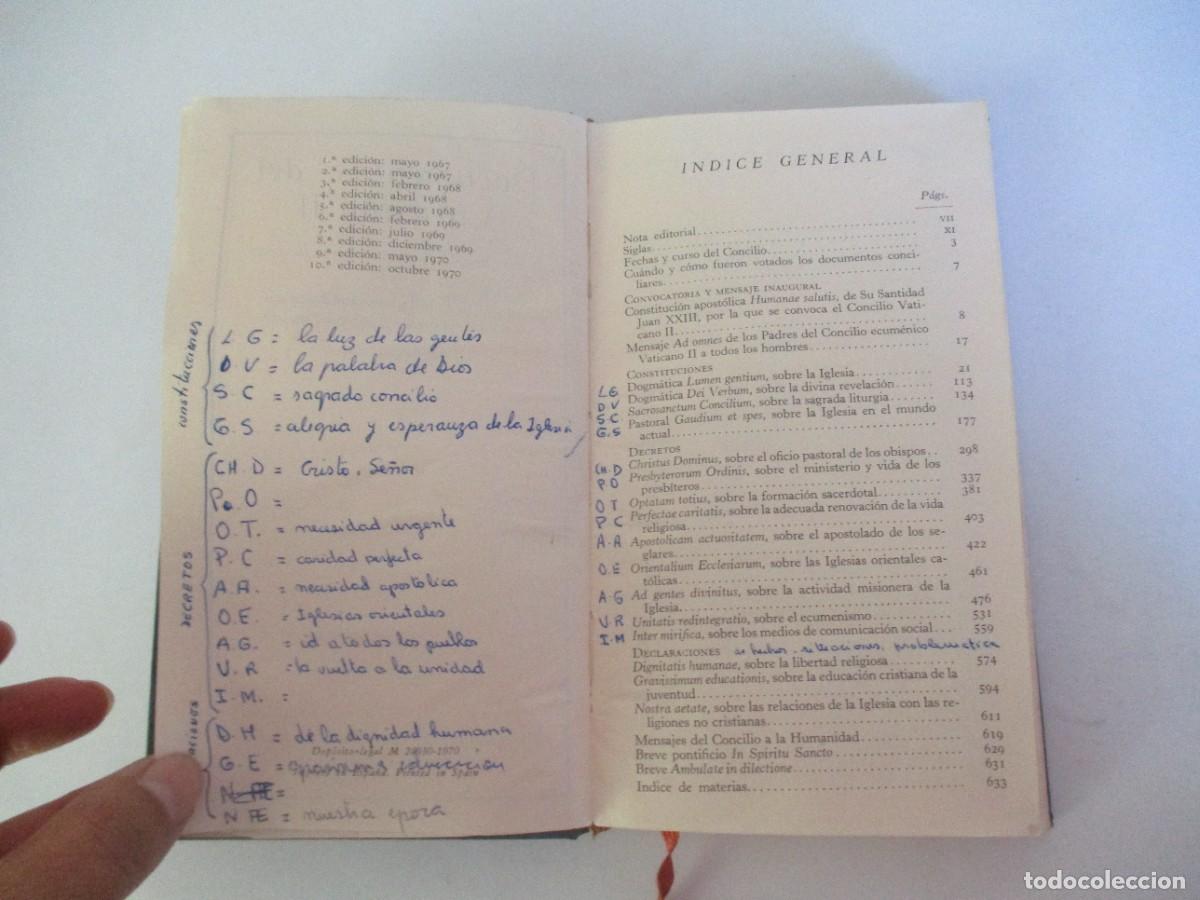 1.ª edición: mayo 1967
2.ª edición: mayo 1967
3.ª edición: febrero 1968
4.ª edición: abril 1968
5.ª edición: agosto 1968
6.ª edición: febrero 1969
7.ª edición: julio 1969
8.ª edición: diciembre 1969
9.ª edición: mayo 1970
10.ª edición: octubre 1970
constituciones
L G = la luz de las gentes
D V = la palabra de Dios
S. C = sagrado concilio
G. S = alegria y esperanza de la Iglesia
DECRETOS
CH. D = Cristo. Señor
P. O =
O. T. = necesidad urgente
P. C = caridad perfecta
A. A. = necesidad apostólica
O. E. = Iglesias orientales
A. G. = id a todos los pueblos
V. R = la vuelta a la unidad
I. M. =
D. H = de la dignidad humana
Depósito legal M
Printed in Spain
G. E = educacion
N Æ =
N Æ = nuestra epoca
INDICE GENERAL
Págs.
Nota editorial VII
Siglas XI
Fechas y curso del Concilio 3
Cuándo y cómo fueron votados los documentos conci-
liares 7
CONVOCATORIA Y MENSAJE INAUGURAL
Constitución apostólica Humanae salutis, de Su Santidad
Juan XXIII, por la que se convoca el Concilio Vati-
cano II 8
Mensaje Ad omnes de los Padres del Concilio ecuménico
Vaticano II a todos los hombres 17
CONSTITUCIONES
LG Dogmática Lumen gentium, sobre la Iglesia 21
D V Dogmática Dei Verbum, sobre la divina revelación 113
S. C Sacrosanctum Concilium, sobre la sagrada liturgia 134
G. S Pastoral Gaudium et spes, sobre la Iglesia en el mundo
actual 177
DECRETOS
CH. D Christus Dominus, sobre el oficio pastoral de los obispos 298
P O Presbyterorum Ordinis, sobre el ministerio y vida de los
presbíteros 337
O T Optatam totius, sobre la formación sacerdotal 381
P C Perfectae caritatis, sobre la adecuada renovación de la vida
religiosa 403
A. A Apostolicam actuositatem, sobre el apostolado de los se-
glares 422
O. E Orientalium Ecclesiarum, sobre las Iglesias orientales ca-
tólicas 461
A. G Ad gentes divinitus, sobre la actividad misionera de la
Iglesia 476
V. R Unitatis redintegratio, sobre el ecumenismo 531
I. M Inter mirifica, sobre los medios de comunicación social 559
DECLARACIONES problematica
Dignitatis humanae, sobre la libertad religiosa 574
Gravissimum educationis, sobre la educación cristiana de la
juventud 594
Nostra aetate, sobre las relaciones de la Iglesia con las re-
ligiones no cristianas 611
Mensajes del Concilio a la Humanidad 619
Breve pontificio In Spiritu Sancto 629
Breve Ambulate in dilectione 631
Indice de materias 633
todocoleccion